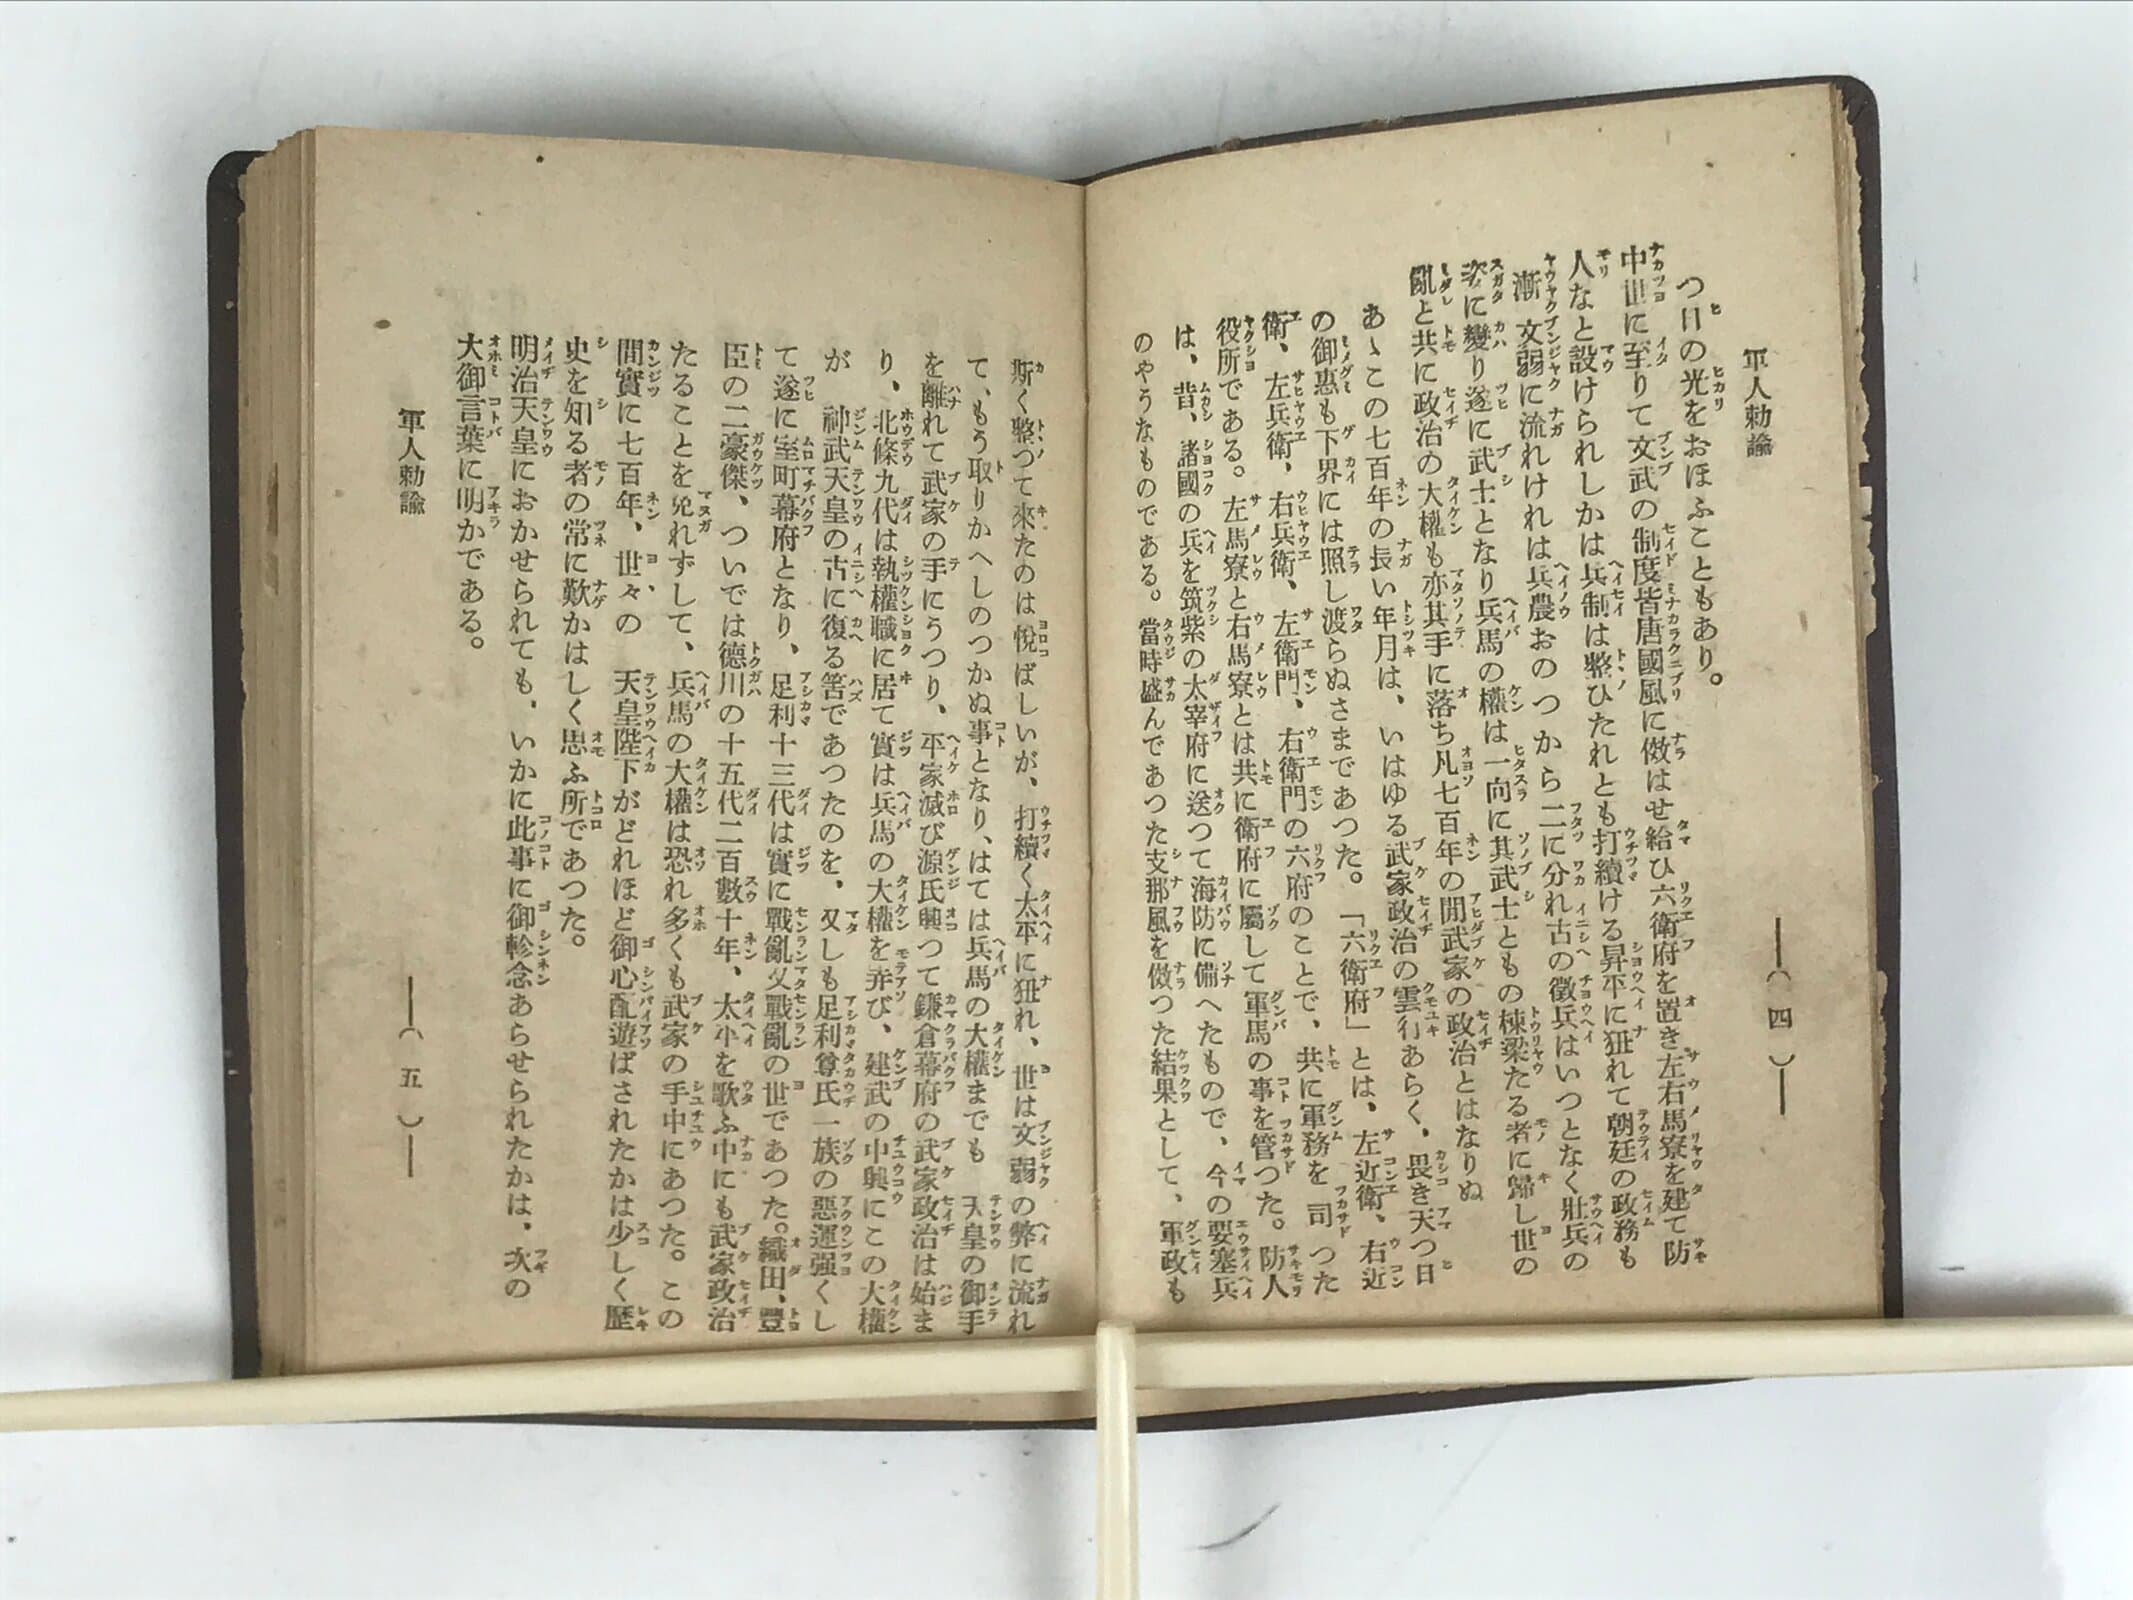 軍人勅諭
つ日の光をおほふこともあり。
中世に至りて文武の制度皆唐國風に傚はせ給ひ六衞府を置き左右馬寮を建て防
人なと設けられしかは兵制は整ひたれとも打續ける昇平に狃れて朝廷の政務も
漸文弱に流れけれは兵農おのつから二に分れ古の徵兵はいつとなく壯兵の
姿に變り遂に武士となり兵馬の權は一向に其武士ともの棟梁たる者に歸し世の
亂と共に政治の大權も亦其手に落ち凡七百年の間武家の政治とはなりぬ
あゝこの七百年の長い年月は、いはゆる武家政治の雲行あらく、畏き天つ日
の御惠も下界には照し渡らぬさまであつた。「六衞府」とは、左近衞、右近
衞、左兵衞、右兵衞、左衞門、右衞門の六府のことで、共に軍務を司つた
役所である。左馬寮と右馬寮とは共に衞府に屬して軍馬の事を管つた。防人
は、昔、諸國の兵を筑紫の太宰府に送つて海防に備へたもので、今の要塞兵
のやうなものである。當時盛んであつた支那風を傚つた結果として、軍政も
―( 四 )―
斯く整つて來たのは悅ばしいが、打續く太平に狃れ、世は文弱の弊に流れ
て、もう取りかへしのつかぬ事となり、はては兵馬の大權までも　天皇の御手
を離れて武家の手にうつり、平家滅び源氏興つて鎌倉幕府の武家政治は始ま
り、北條九代は執權職に居て實は兵馬の大權を弄び、建武の中興にこの大權
が　神武天皇の古に復る筈であつたのを、又しも足利尊氏一族の惡運强くし
て遂に室町幕府となり、足利十三代は實に戰亂又戰亂の世であつた。織田、豐
臣の二豪傑、ついでは德川の十五代二百數十年、太平を歌ふ中にも武家政治
たることを免れずして、兵馬の大權は恐れ多くも武家の手中にあつた。この
間實に七百年、世々の　天皇陛下がどれほど御心配遊ばされたかは少しく歷
史を知る者の常に歎かはしく思ふ所であつた。
明治天皇におかせられても、いかに此事に御軫念あらせられたかは、次の
大御言葉に明かである。
軍人勅諭
―( 五 )―